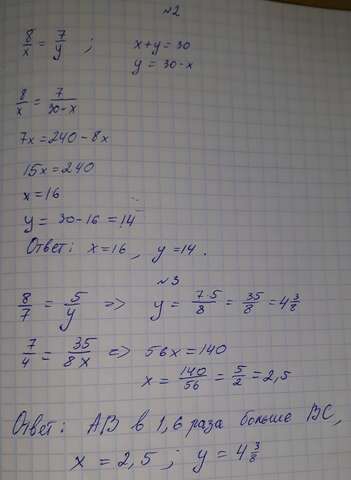 №2
8/x = 7/y ; x+y=30
y = 30-x
8/x = 7/30-x
7x=240-8x
15x=240
x=16
y = 30-16 = 14
Ответ: x=16, y=14.
№3
8/7 = 5/y => y = 7·5/8 = 35/8 = 4 3/8
7/4 = 35/8x => 56x=140
x = 140/56 = 5/2 = 2,5
Ответ: AB в 1,6 раза больше BC,
x = 2,5 ; y = 4 3/8